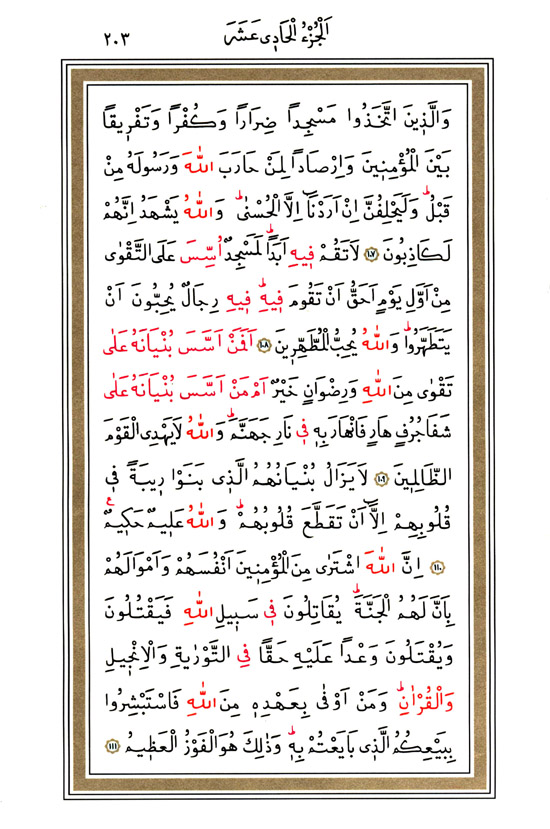 اَلْجُزْءُ الْحَادِي عَشَرَ ٢٠٣
وَالَّذِينَ اتَّخَذُوا مَسْجِداً ضِرَاراً وَكُفْراً وَتَفْرِيقاً
بَيْنَ الْمُؤْمِنِينَ وَاِرْصَاداً لِمَنْ حَارَبَ اللّٰهَ وَرَسُولَهُ مِنْ
قَبْلُۜ وَلَيَحْلِفُنَّ اِنْ اَرَدْنَٓا اِلَّا الْحُسْنٰىۜ وَاللّٰهُ يَشْهَدُ اِنَّهُمْ
لَكَاذِبُونَ ﴿١٠٧﴾ لَا تَقُمْ فِيهِ اَبَداًۜ لَمَسْجِدٌ اُسِّسَ عَلَى التَّقْوٰى
مِنْ اَوَّلِ يَوْمٍ اَحَقُّ اَنْ تَقُومَ فِيهِۜ فِيهِ رِجَالٌ يُحِبُّونَ اَنْ
يَتَطَهَّرُواۜ وَاللّٰهُ يُحِبُّ الْمُطَّهِّرِينَ ﴿١٠٨﴾ اَفَمَنْ اَسَّسَ بُنْيَانَهُ عَلٰى
تَقْوٰى مِنَ اللّٰهِ وَرِضْوَانٍ خَيْرٌ اَمْ مَنْ اَسَّسَ بُنْيَانَهُ عَلٰى
شَفَا جُرُفٍ هَارٍ فَانْهَارَ بِهِ فِي نَارِ جَهَنَّمَۜ وَاللّٰهُ لَا يَهْدِي الْقَوْمَ
الظَّالِمِينَ ﴿١٠٩﴾ لَا يَزَالُ بُنْيَانُهُمُ الَّذِي بَنَوْا رِيبَةً فِي
قُلُوبِهِمْ اِلَّٓا اَنْ تَقَطَّعَ قُلُوبُهُمْۜ وَاللّٰهُ عَلِيمٌ حَكِيمٌ
﴿١١٠﴾ اِنَّ اللّٰهَ اشْتَرٰى مِنَ الْمُؤْمِنِينَ اَنْفُسَهُمْ وَاَمْوَالَهُمْ
بِاَنَّ لَهُمُ الْجَنَّةَۜ يُقَاتِلُونَ فِي سَبِيلِ اللّٰهِ فَيَقْتُلُونَ
وَيُقْتَلُونَ وَعْداً عَلَيْهِ حَقاًّ فِي التَّوْرٰيةِ وَالْاِنْجِيلِ
وَالْقُرْاٰنِۜ وَمَنْ اَوْفٰى بِعَهْدِهِ مِنَ اللّٰهِ فَاسْتَبْشِرُوا
بِبَيْعِكُمُ الَّذِي بَايَعْتُمْ بِهِۜ وَذٰلِكَ هُوَ الْفَوْزُ الْعَظِيمُ ﴿١١١﴾